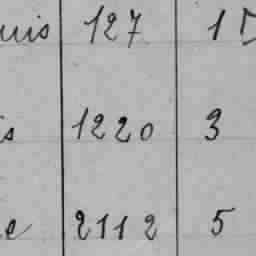 uis 127 15
is 1220 3
e 2112 5